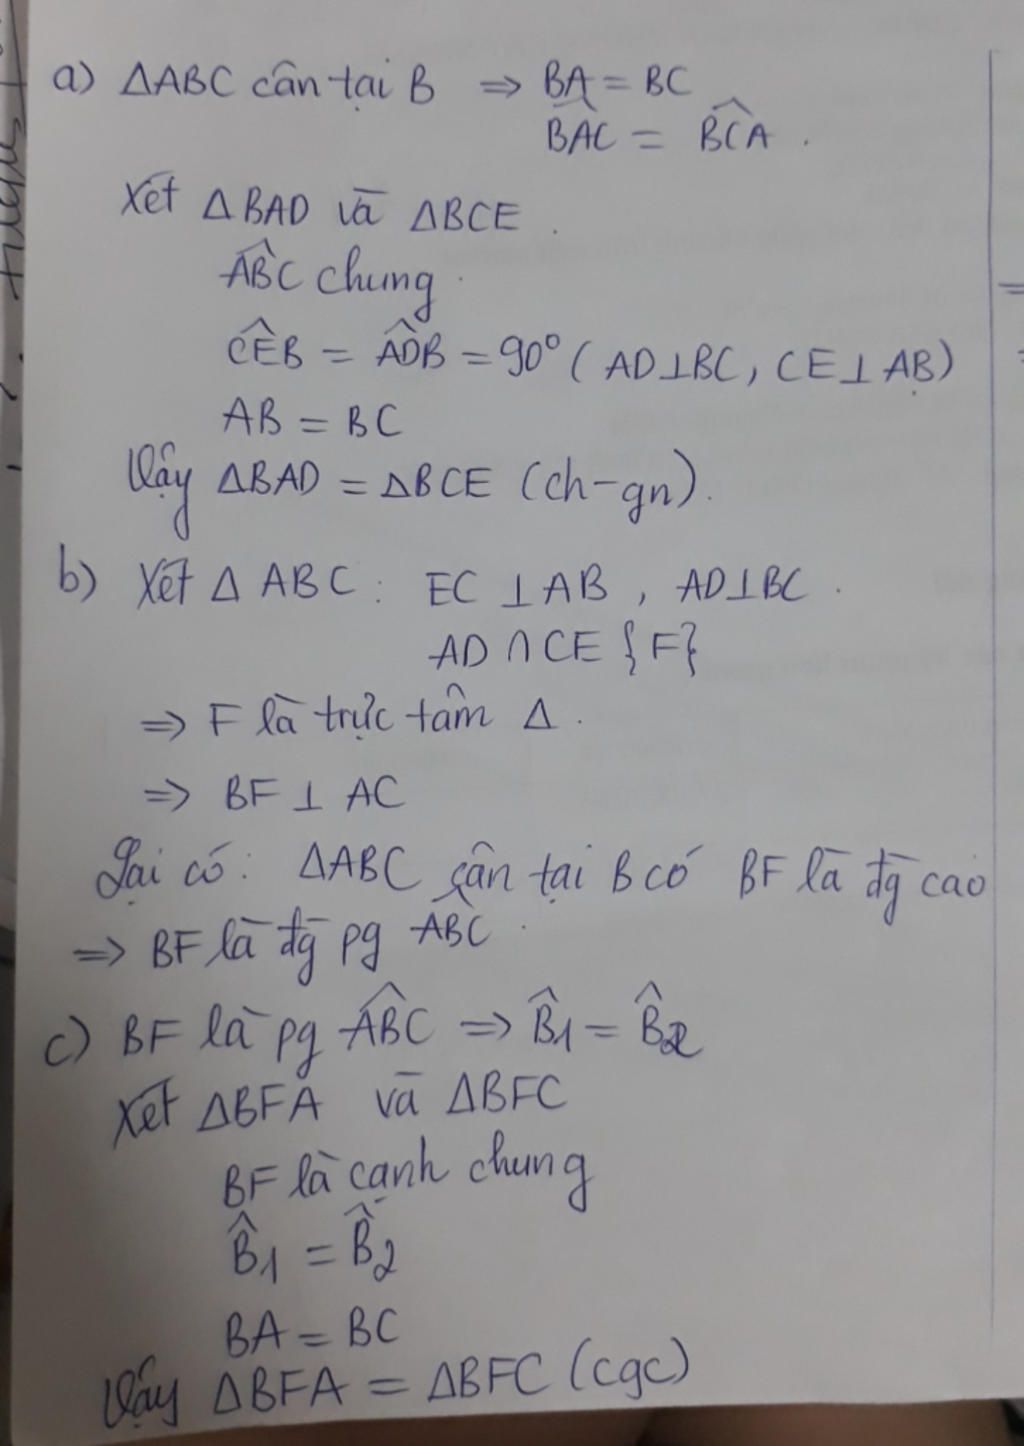 a) ΔABC cân tại B ⇒ BA = BC
BAC^ = BCA^.
Xét ΔBAD và ΔBCE.
ABC^ chung.
CEB^ = ADB^ = 90° (AD⊥BC, CE⊥AB)
AB = BC
Vậy ΔBAD = ΔBCE (ch-gn).
b) Xét Δ ABC: EC ⊥ AB, AD⊥BC.
AD ∩ CE {F}
⇒ F là trực tâm Δ.
⇒ BF ⊥ AC
Lại có: ΔABC cân tại B có BF là đg cao
⇒ BF là đg pg ABC^.
c) BF là pg ABC^ ⇒ B̂1 = B̂2
Xét ΔBFA và ΔBFC
BF là cạnh chung
B̂1 = B̂2
BA = BC
Vậy ΔBFA = ΔBFC (cgc)